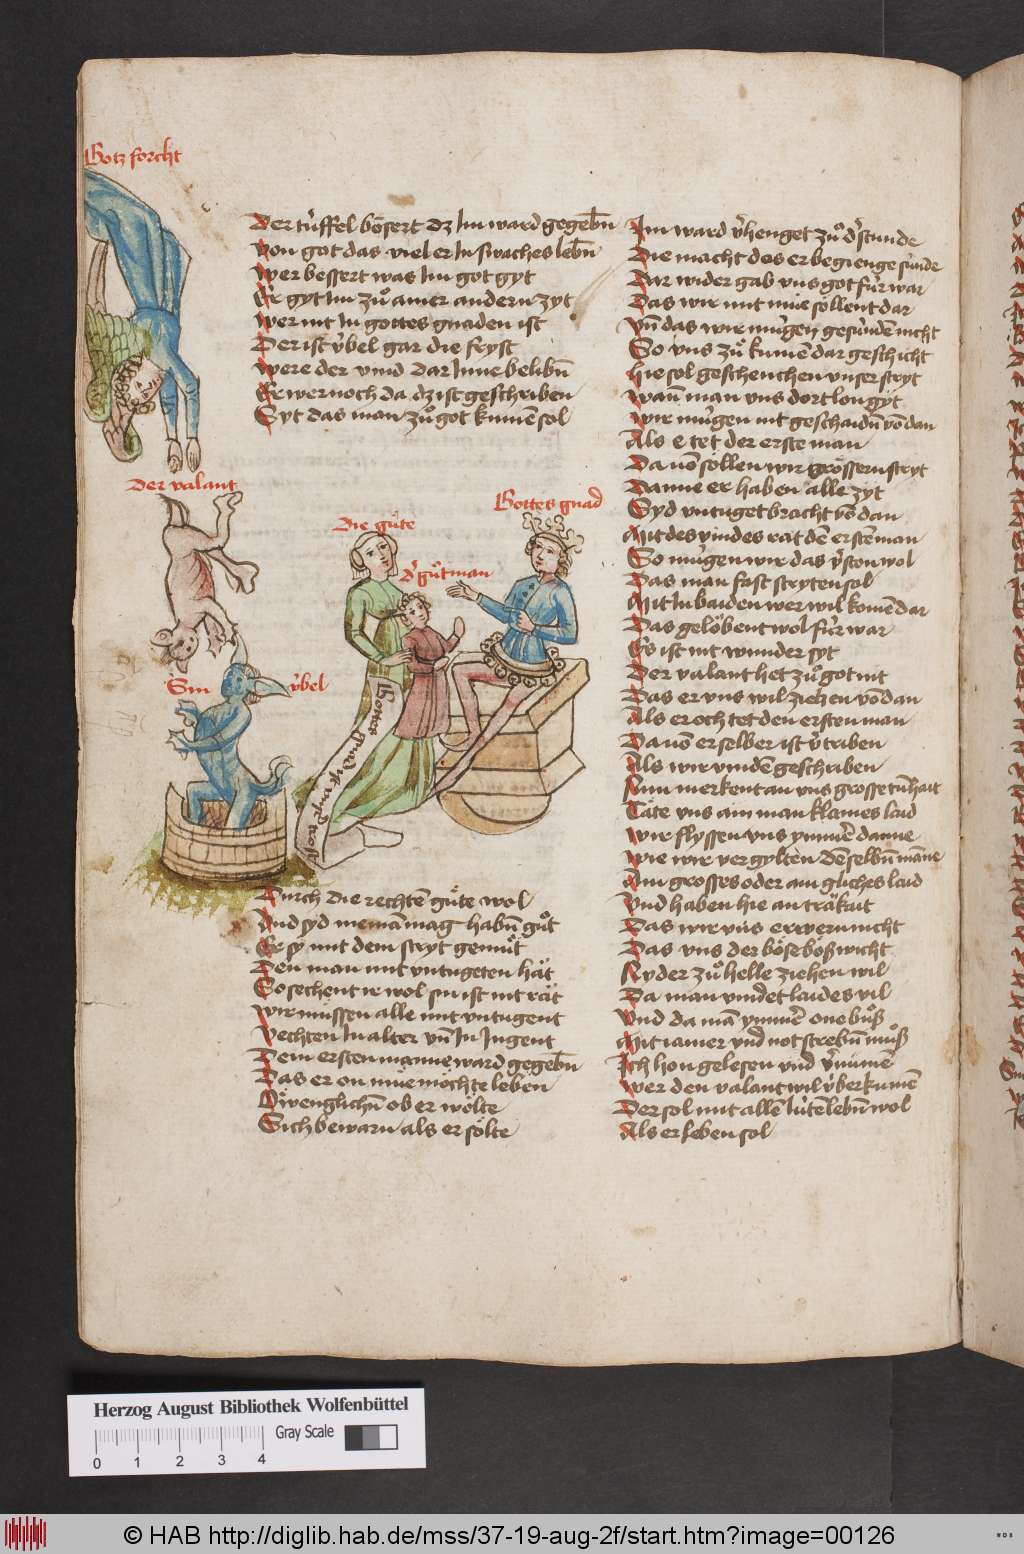 Gotz forcht
Der túffel bösert dz Im ward gegebn̄
Von got das viel er In swaches lebn̄
Wer bessert was Im got gyt
Er gyt Im zuͦ ainer andern zyt
Wer nit In gottes gnaden ist
Der ist v́bel gar die fryst
Were der vind dar Inne belibn̄
Er wer noch da dz ist geschriben
Syt das man zuͦ got kumē sol
Der valant
Sin v́bel
Die guͤte
Dʼ guͦt man
Gottes gnad
Gottes gnad ist myn trost
Durch die rechtē guͤte wol
Und syd niemā mag habn̄ guͦt
Er sy mit dem stryt gemuͦt
Den man mit vntugeten hät
So sechent ir wol sin ist nit rät
Wir müssen alle mit vntugent
Vechten In alter vn̄ In Jugent
Dem ersten manne ward gegebn̄
Das er on müe möchte leben
Öwenglichn̄ ob er wölte
Sich bewarn als er sölte
Im ward vʼhenget zuͦ dʼ stunde
Die macht des er begienge súnde
Dar wider gab vns got für war
Das wir mit müe sollent dar
Vn̄ das wir múgen gesúndē nicht
So vns zuͦ kumē dar geschicht
Hie sol geschenchen vnser stryt
Wan̄ man vns dort lon gyt
Wir múgen nit geschaidn̄ vō dan
Als e tet der erste man
Da vō söllen wir grössern stryt
Danne er haben alle zyt
Syd vntuget bracht vō dan
Mit des vindes rat dē erstē man
So múgen wir das vʼston wol
Das man fast stryten sol
Mit In baiden wer wil komē dar
Das gelöbent wol für war
Es ist nit wunder syt
Der valant het zuͦ got nit
Das er vns wil ziehen vō dan
Als er och tet den ersten man
Da vō er selber ist vʼtriben
Als wir vindē geschriben
Nun merkent an vns grosse tum̄hait
Täte vns ain man klaines laid
Wir flyssen vns ymmʼē danne
Wie wir vergylten dē selbn̄ mane
Ain grosses oder ain gliches laid
Und haben hie an träkait
Das wir vns erwern nicht
Das vns der böse böß wicht
Nyder zuͦ helle ziehen wil
Da man vindet laides vil
Und da mā ymmʼē one buͦß
Mit iamer vnd not strebn̄ muͦß
Ich hon gelesen vnd vʼnümē
Wer den valant wil v́berkumē
Der sol mit allē lútē lebn̄ wol
Als er leben sol
Herzog August Bibliothek Wolfenbüttel
Gray Scale
0 1 2 3 4
© HAB http://diglib.hab.de/mss/37-19-aug-2f/start.htm?image=00126